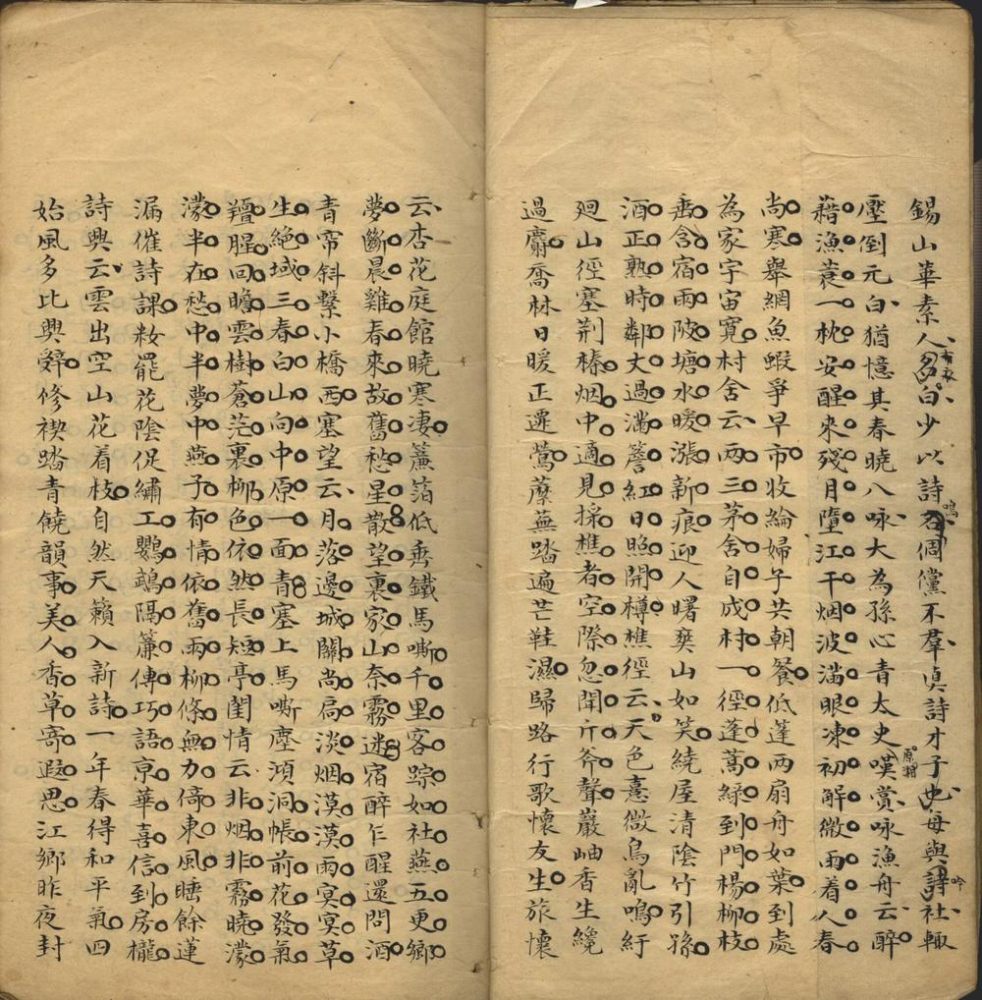 錫山華素人芴白少以詩名倜儻不羣真詩才子也每與詩社輒
壓倒元白猶憶其春曉八咏大為孫心青太史嘆賞咏漁舟云醉
藉漁蓑一枕安醒來殘月墮江干烟波滿眼凍初解微雨着人春
尚寒舉網魚蝦爭早市收綸婦子共朝餐低蓬兩扇舟如葉到處
為家宇宙寬村舍云兩三茅舍自成村一徑蓬蒿綠到門楊柳枝
垂含宿雨陂塘水暖漲新痕迎人曙爽山如笑繞屋清陰竹引孫
酒正熟時鄰丈過滿簷紅日照開樽樵徑云天色熹微鳥亂鳴紆
廻山徑塞荆榛烟中適見採樵者空際忽聞斤斧聲巖岫香生纔
過麝喬林日暖正遷鶯蘼蕪踏遍芒鞋濕歸路行歌懷友生旅懷
云杏花庭館曉寒淒簾箔低垂鐵馬嘶千里客踪如社燕五更鄉
夢斷晨雞春來故舊愁星散望裏家山奈霧迷宿醉乍醒還問酒
青帘斜繫小橋西塞望云月落邊城關尚扃淡烟漠漠雨冥冥草
生絕域三春白山向中原一面青塞上馬嘶塵澒洞帳前花發氣
羶腥回瞻雲樹蒼茫裏柳色依然長短亭閨情云非烟非霧曉濛
濛半在愁中半夢中燕子有情依舊雨柳條無力倚東風睡餘蓮
漏催詩課粧罷花陰促繡工鸚鵡隔簾傳巧語京華喜信到房櫳
詩興云雲出空山花着枝自然天籟入新詩一年春得和平氣四
始風多比興辭修禊踏青饒韻事美人香草寄遐思江鄉昨夜封